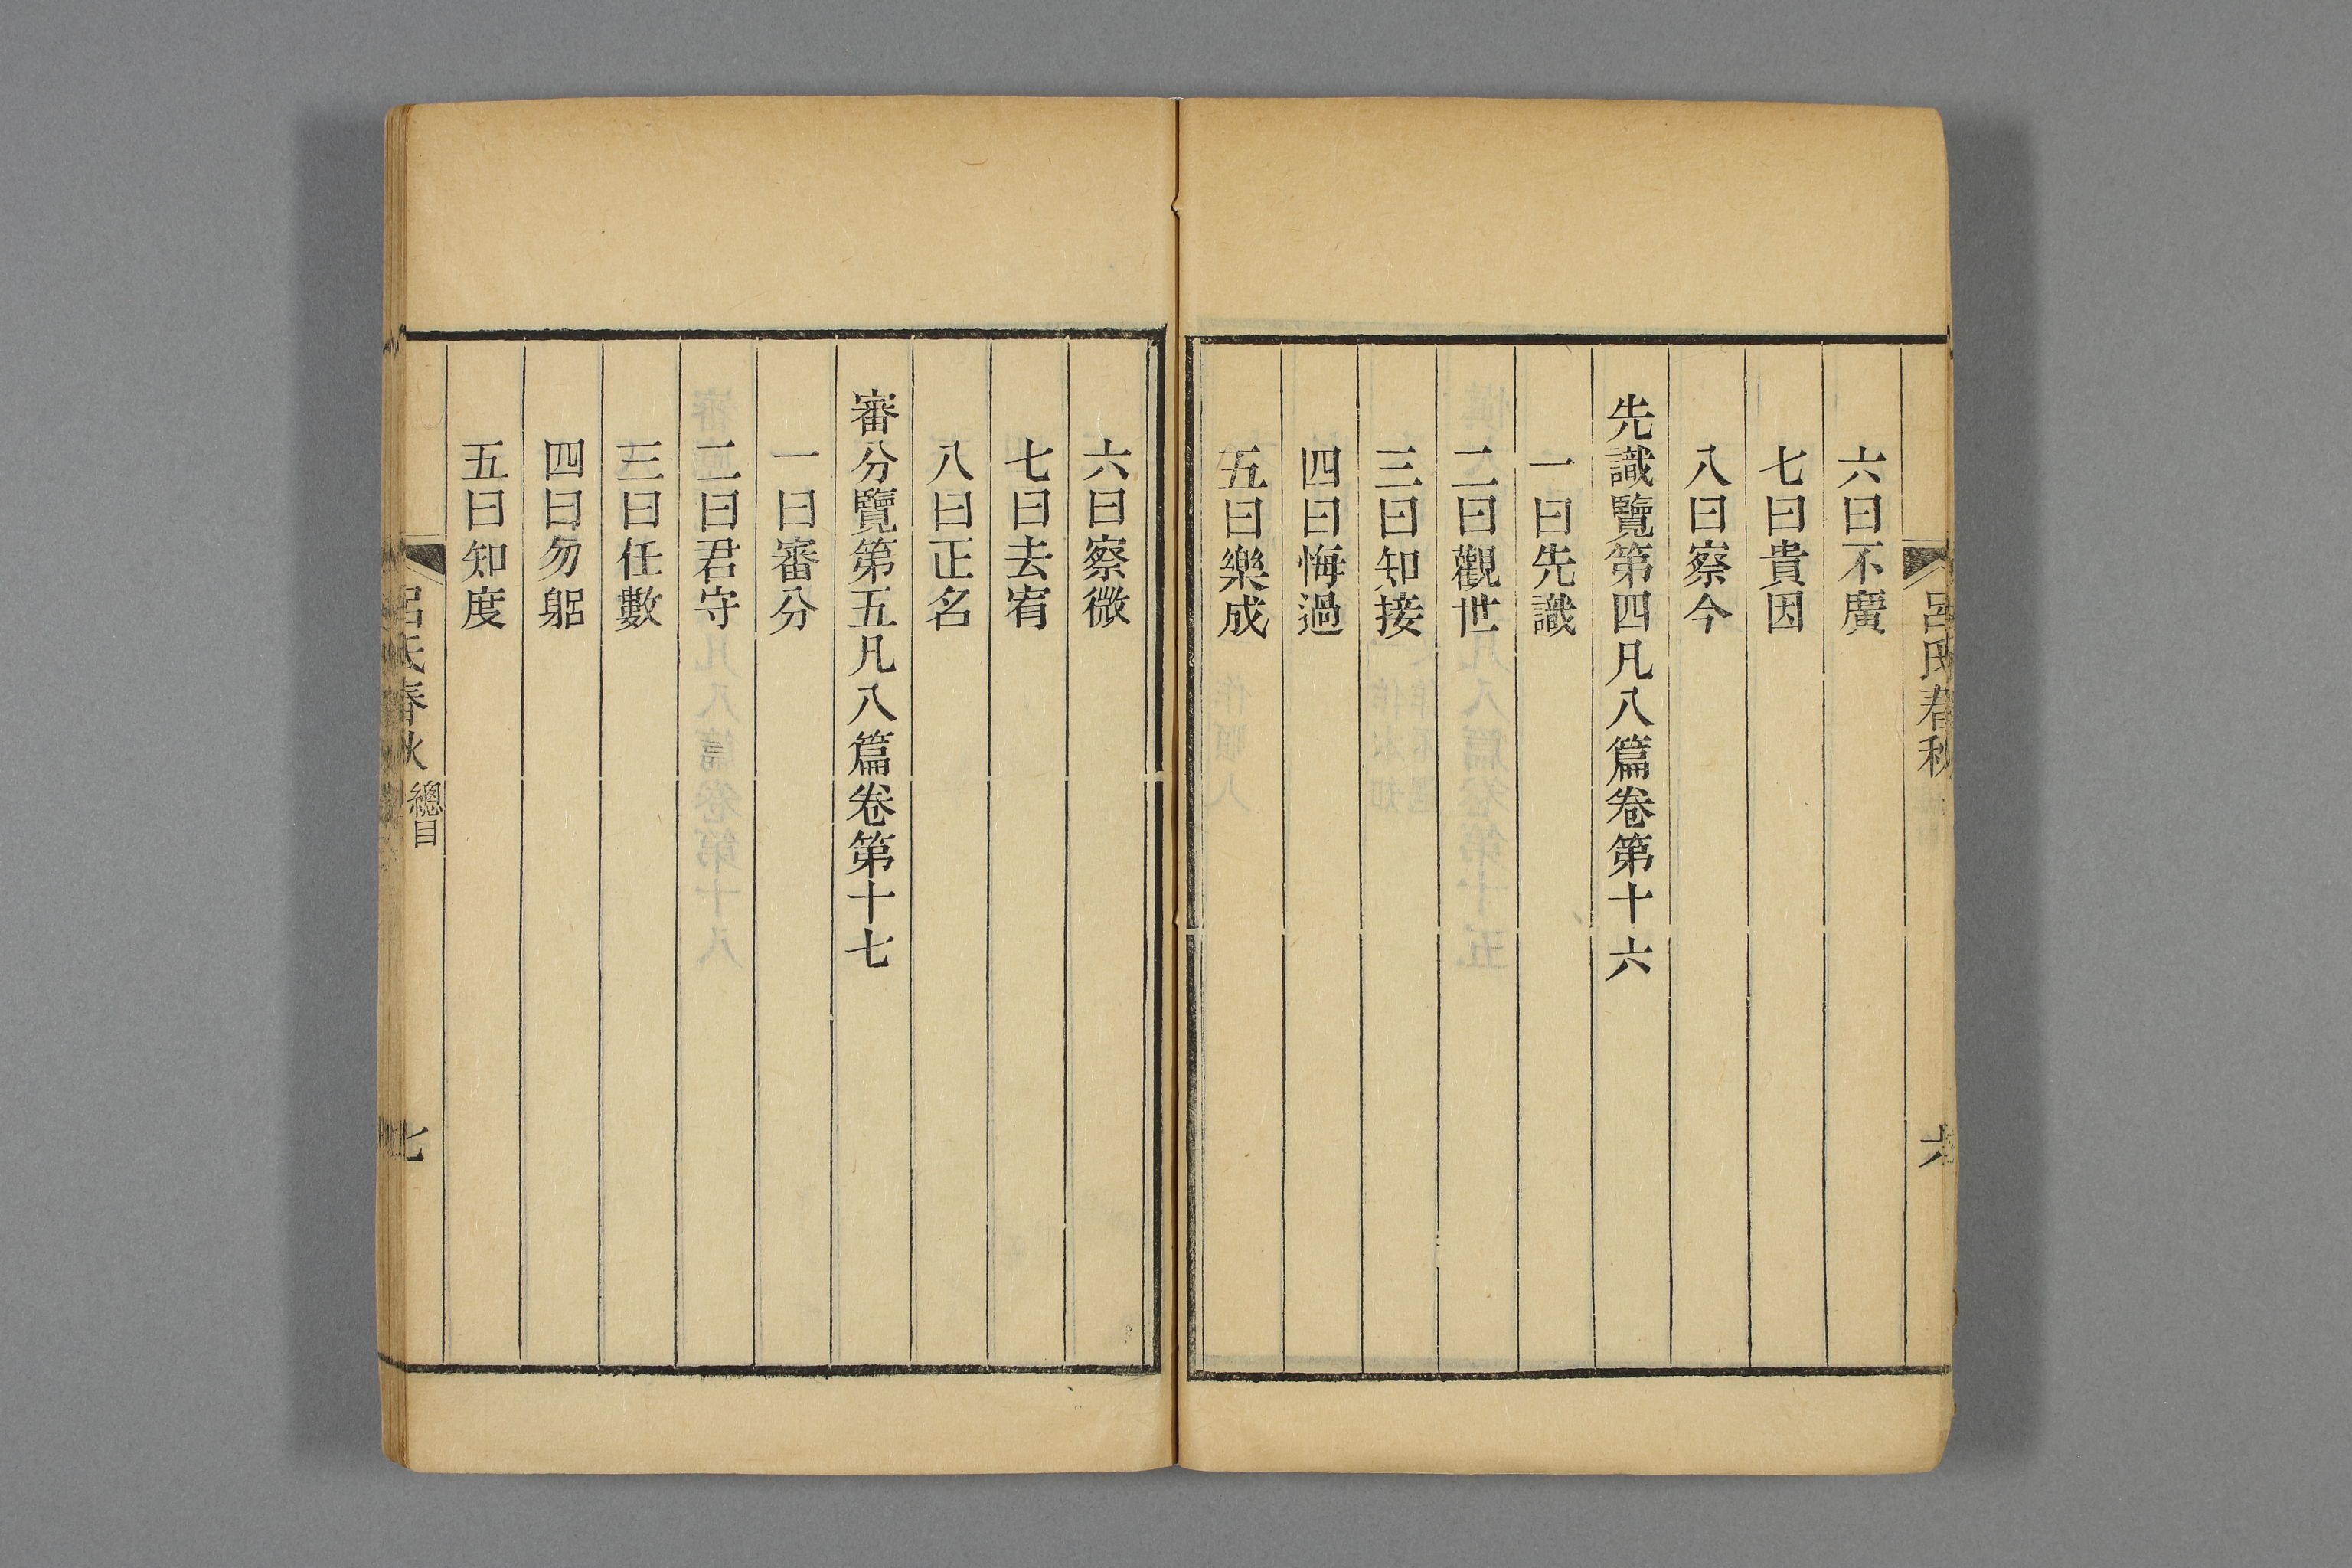 呂氏春秋
六
六曰不廣
七曰貴因
八曰察今
先識覽第四凡八篇卷第十六
一曰先識
二曰觀世
三曰知接
四曰悔過
五曰樂成
六曰察微
七曰去宥
八曰正名
審分覽第五凡八篇卷第十七
一曰審分
二曰君守
三曰任數
四曰勿躳
五曰知度
呂氏春秋
總目
七